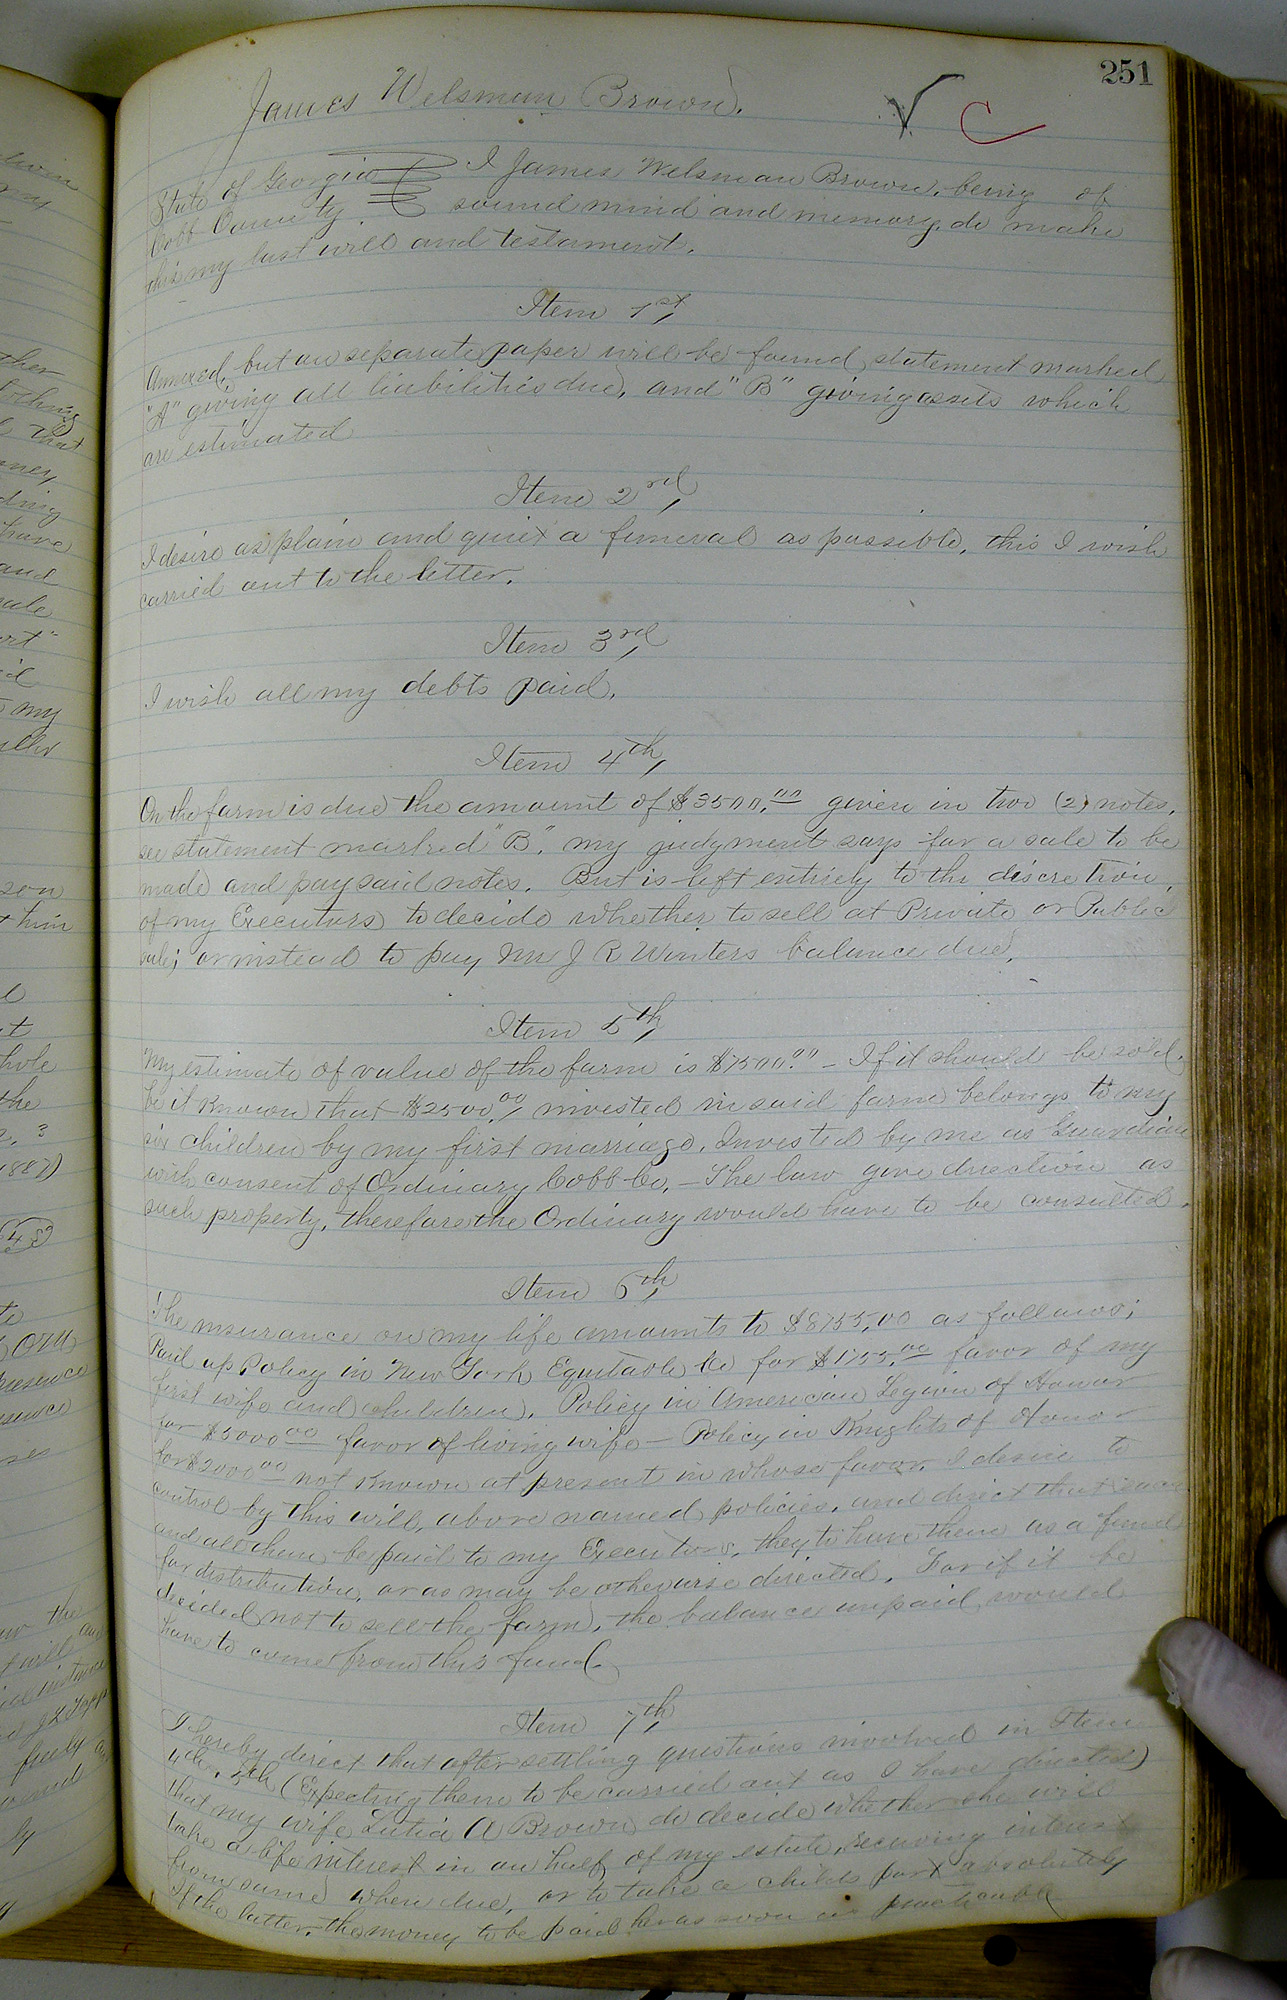 251
James Welsman Brown.
State of Georgia I James Welsman Brown, being of
Cobb County. sound mind and memory, do make
this my last will and testament.
Item 1st,
Annexed, but on separate paper will be found statement marked
"A" giving all liabilities due, and "B" giving assets which
are estimated
Item 2rd,
I desire as plain and quiet a funeral as possible, this I wish
carried out to the letter.
Item 3rd,
I wish all my debts paid.
Item 4th,
On the farm is due the amount of $3500.00 given in two (2) notes,
see statement marked "B". my judgment says for a sale to be
made and pay said notes. But is left entirely to the discretion
of my Executors to decide whether to sell at Private or Public
sale; or instead to pay Mr J R Winters balance due.
Item 5th,
My estimate of value of the farm is $7500.00 - If it should be sold,
be it Known that $2500.00, invested in said farm belongs to my
six children by my first marriage. Invested by me as Guardian
with consent of Ordinary Cobb Co. - The law give direction as
such property, therefore the Ordinary would have to be consulted.
Item 6th,
The insurance on my life amounts to $8755.00 as follows;
Paid up Policy in New York Equitable Co for $1755.00 favor of my
first wife and children. Policy in American Legion of Honor
for $5000.00 favor of living wife - Policy in Knights of Honor
for $2000.00 not Known at present in whose favor. I desire to
control by this will, above named policies, and direct that each
and all them be paid to my Executors, they to have them as a fund
for distribution, or as may be otherwise directed. For if it be
decided not to sell the farm, the balance unpaid, would
have to come from this fund.
Item 7th,
I hereby direct that after settling questions involved in Item
4th, 5th (Expecting them to be carried out as I have directed)
that my wife Lutia A Brown do decide whether she will
take a life interest in one half of my estate, receiving interest
from same when due, or to take a childs part absolutely
If the latter, the money to be paid her as soon as practicable